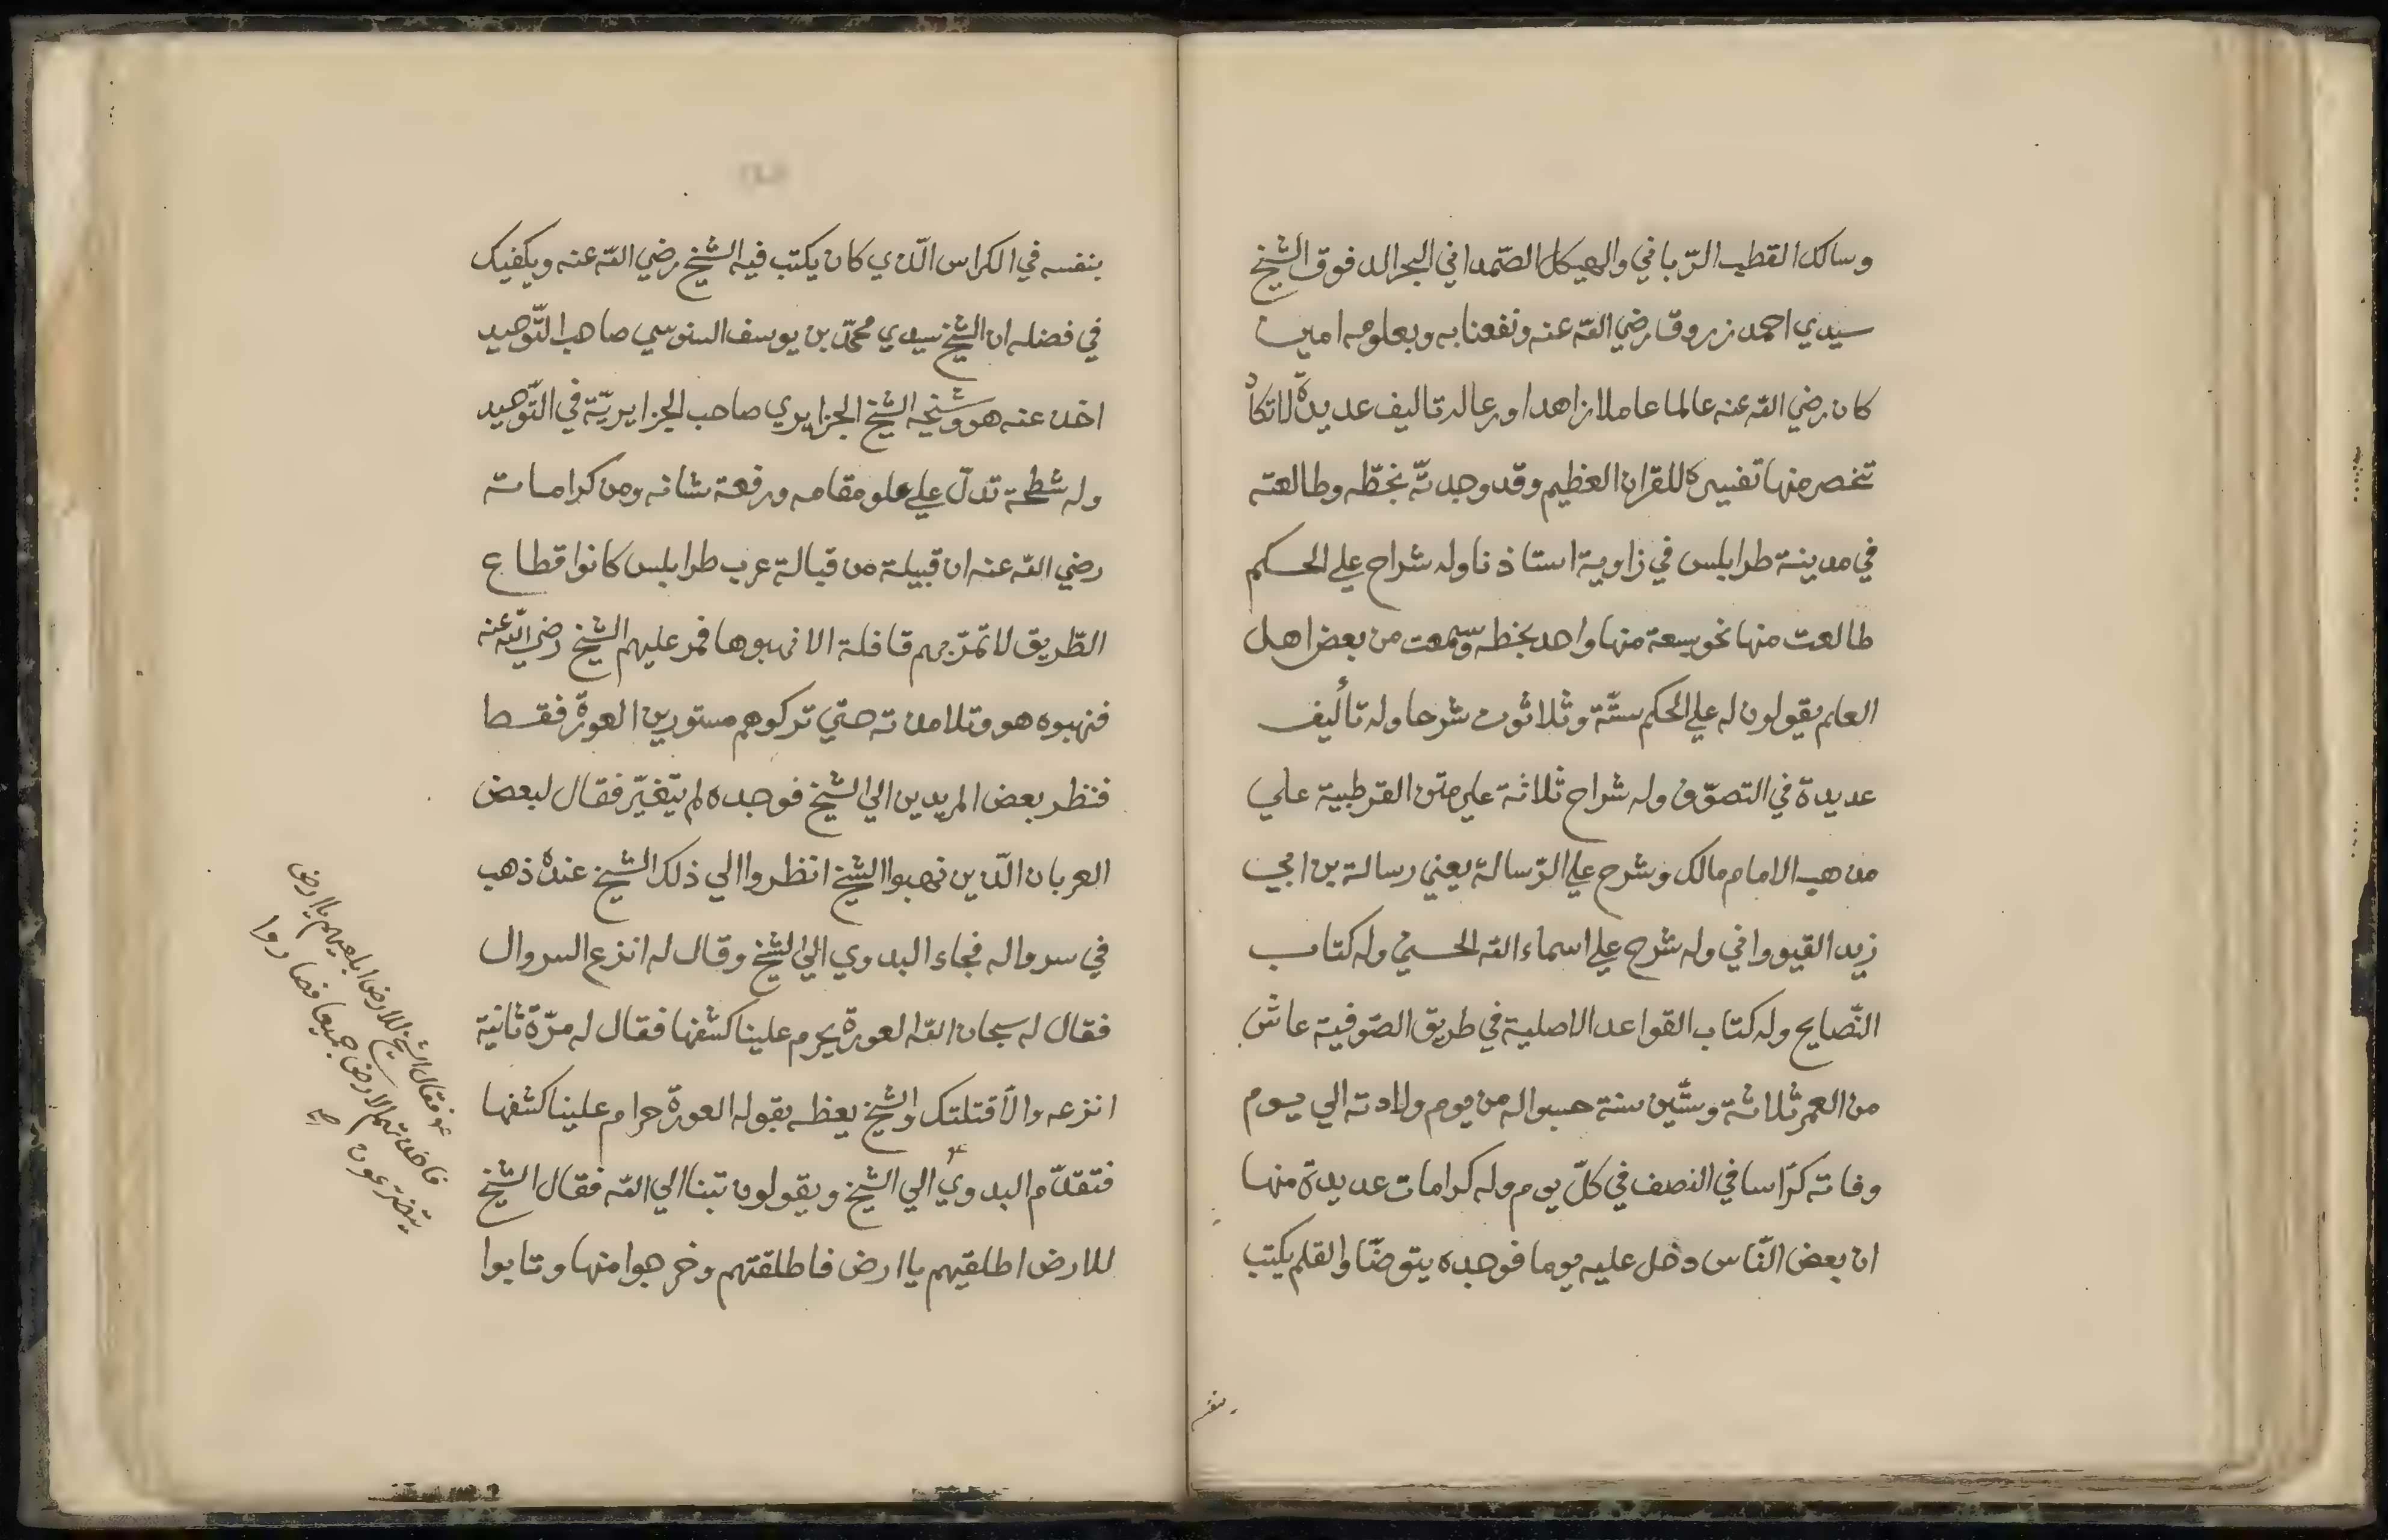 وسالك القطب الرّباني والهيكل الصّمداني البحر الدفوق الشيخ
سيدي احمد زروق رضي الله عنه ونفعنا به وبعلومه امين
كان رضي الله عنه عالما عاملا زاهدا ورعا له تاليف عديدة لا تكاد
تنحصر منها تفسيره للقران العظيم وقد وجدتّه بخطّه وطالعته
في مدينة طرابلس في زاوية استاذنا وله شراح علي الحكم
طالعت منها نحو سبعة منها واحد بخطه وسمعت من بعض اهل
العلم يقولون له علي الحكم ستّة وثلاثون شرحا وله تأليف
عديدة في التصوّف وله شراح ثلاثة علي متن القرطبية علي
مذهب الامام مالك وشرح علي الرّسالة يعني رسالة بن ابي
زيد القيرواني وله شرح علي اسماء الله الحسني وله كتاب
النّصايح وله كتاب القواعد الاصلية في طريق الصّوفية عاش
من العمر ثلاثة وستّين سنة حسبوا له من يوم ولادته الي يوم
وفاته كرّاسا في النصف في كلّ يوم وله كرامات عديدة منها
ان بعض النّاس دخل عليه يوما فوجده يتوضّا والقلم يكتب
بنفسه
بنفسه في الكراس الّذي كان يكتب فيه الشيخ رضي الله عنه ويكفيك
في فضله ان الشيخ سيدي محمّد بن يوسف السنوسي صاحب التّوحيد
اخذ عنه هو وشيخه الشيخ الجزايري صاحب الجزايريّة في التّوحيد
وله شطحة تدلّ علي علو مقامه ورفعة شانه ومن كراماته
رضي الله عنه ان قبيلة من قبالة عرب طرابلس كانوا قطاع
الطّريق لا تمرّ بهم قافلة الا نهبوها فمر عليهم الشيخ رضي الله عنه
فنهبوه هو وتلامذته حتي تركوهم مستورين العورة فقط
فنظر بعض المريدين الي الشيخ فوجده لم يتغيّر فقال لبعض
العربان الّذين نهبوا الشيخ انظروا الي ذلك الشيخ عنده ذهب
في سرواله فجاء البدوي الي الشيخ وقال له انزع السروال
فقال له سبحان الله العورة يحرم علينا كشفها فقال له مرّة ثانية
انزعه والّا قتلتك والشيخ يعظه بقوله العورة حرام علينا كشفها
فتقدّم البدوي الي الشيخ ويقولون تبنا الي الله فقال الشيخ
للارض اطلقيهم يا ارض فاطلقتهم وخرجوا منها وتابوا
فقال الشيخ للارض ابلعيهم يا ارض
فاخذتهم الارض جميعا فصاروا
يتضرّعون صح